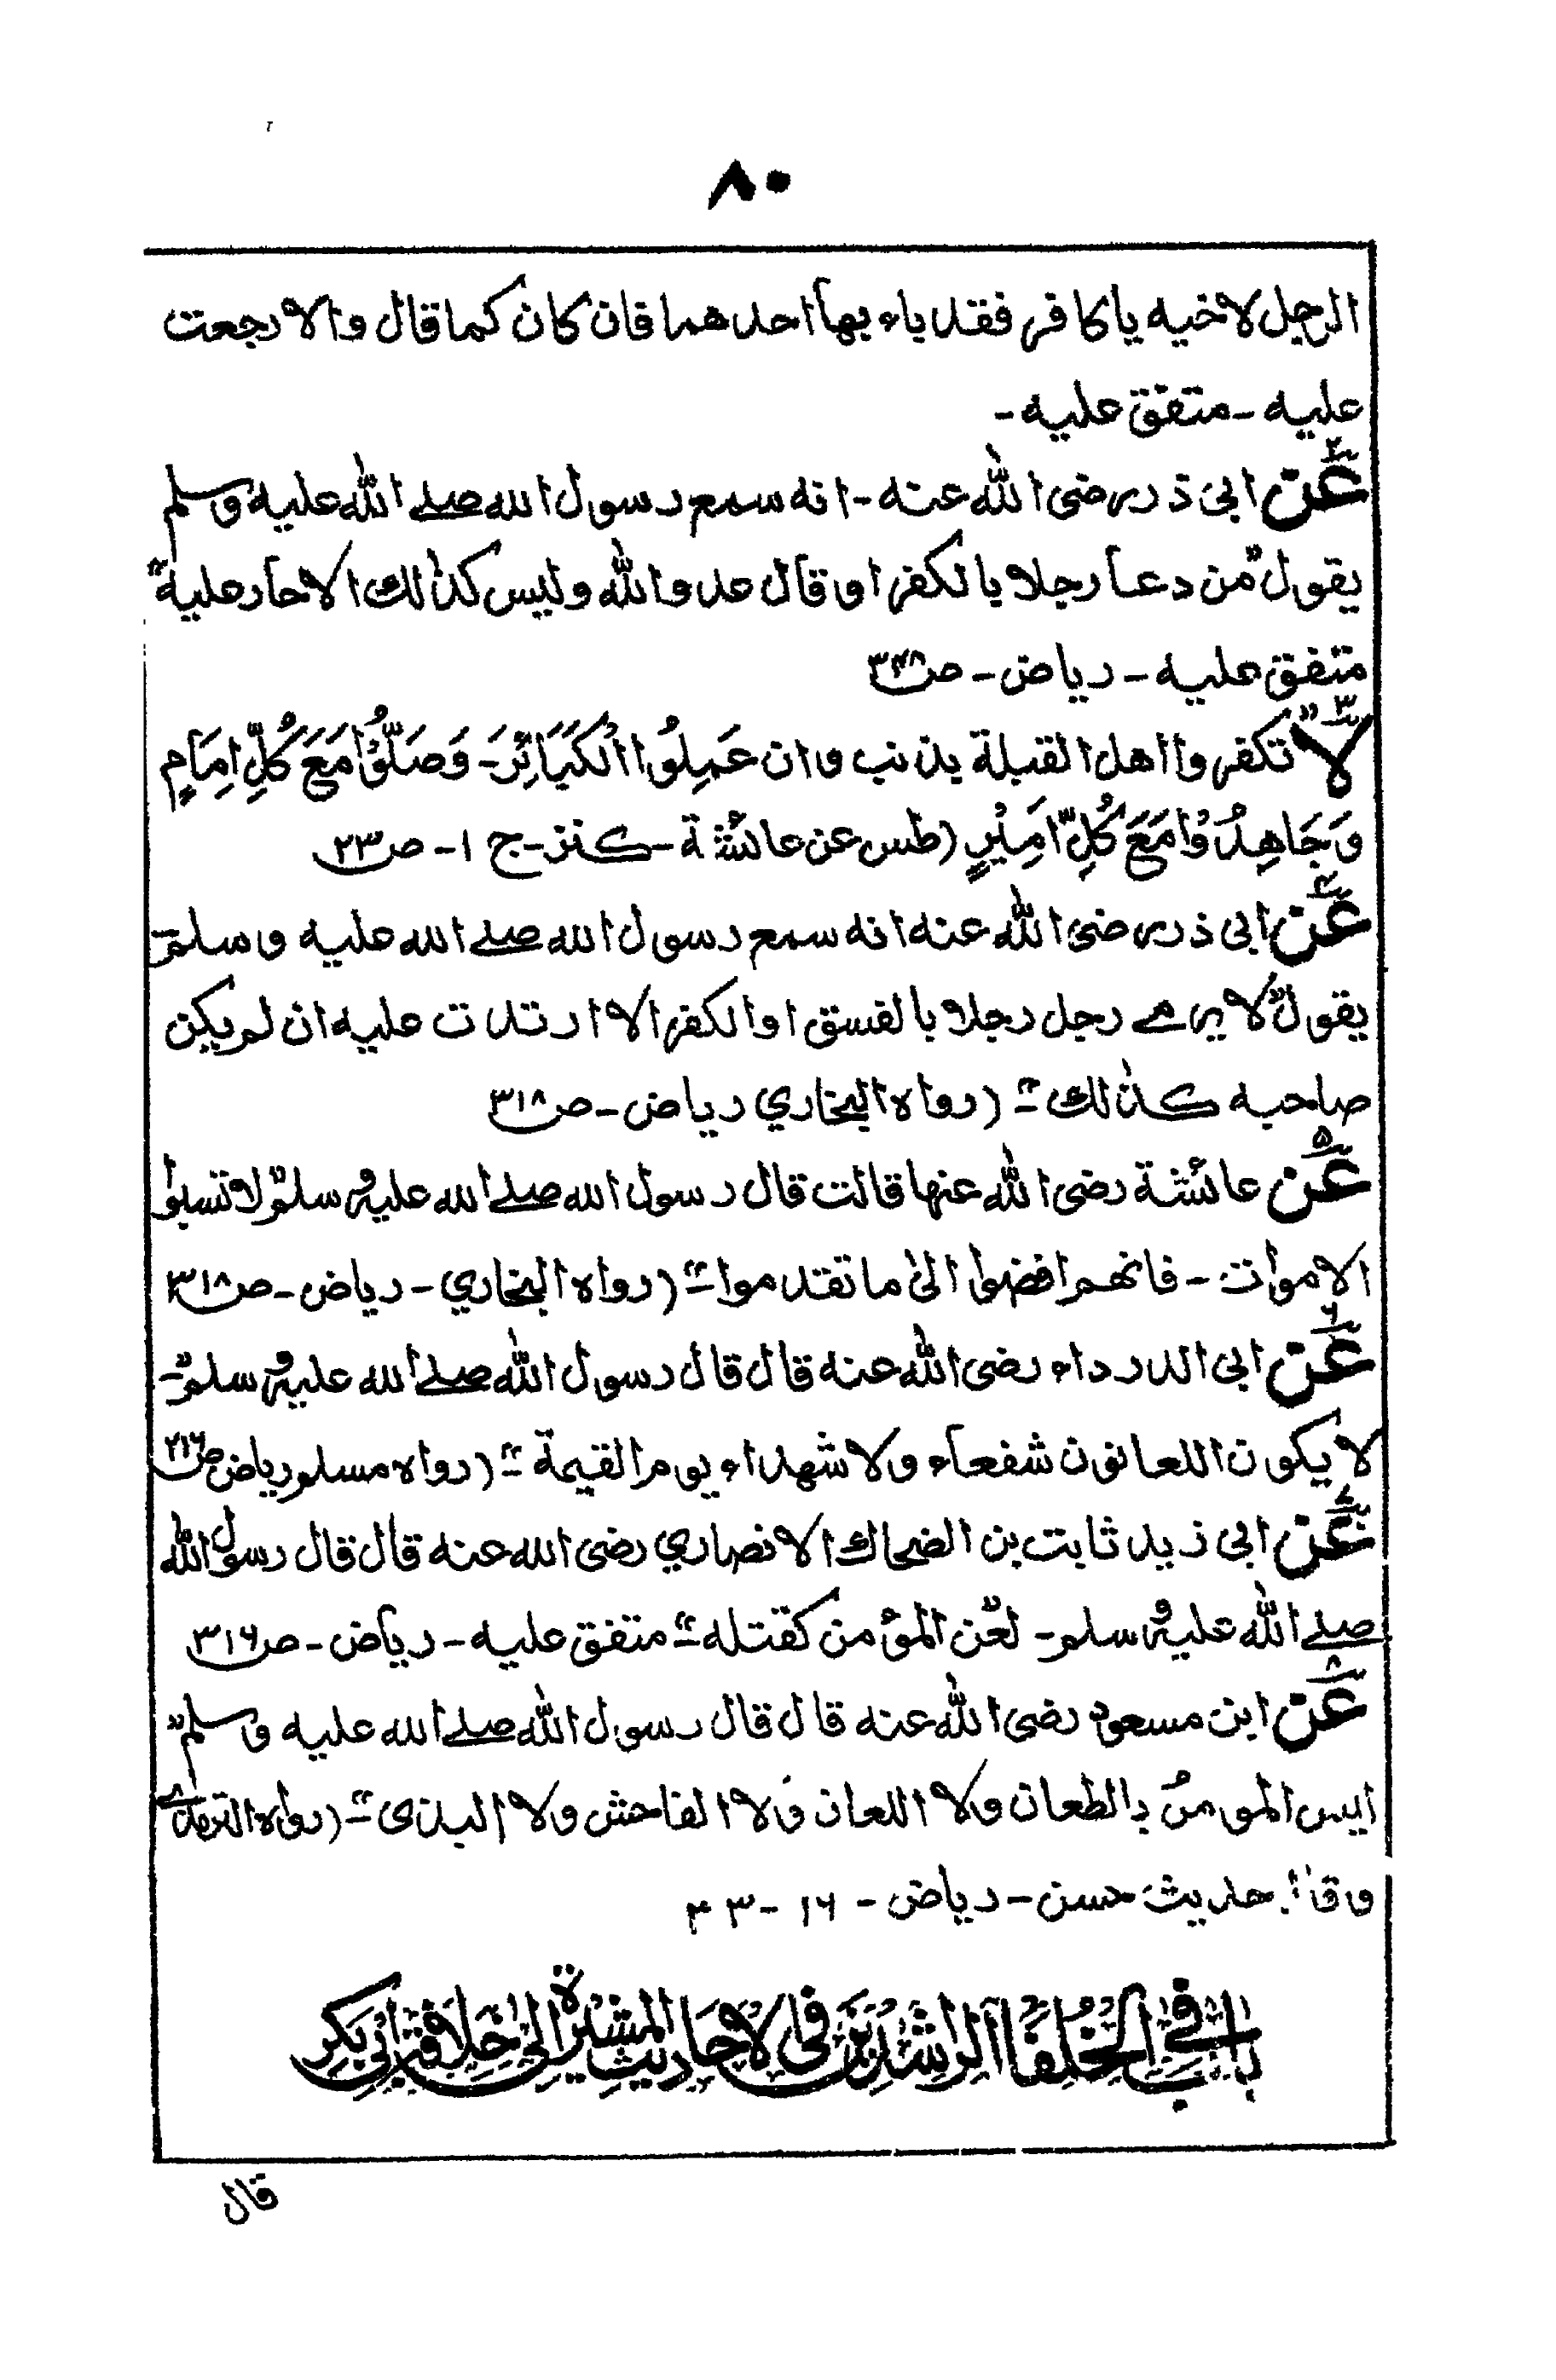 ٨٠
الرجل لاخيه يا كافر فقد باء بها احدهما فان كان كما قال والا رجعت
عليه - متفق عليه -
٢ عن ابى ذر رضى الله عنه - انه سمع رسول الله صلے الله عليه وسلم
يقول "من دعا رجلا بالكفر او قال عدو الله وليس كذٰلك الا حار عليه"
متفق عليه - رياض - ص
٣ لا "تكفروا اهل القبلة بذنب وان عَمِلُوا الْكَبَائِرَ - وَصَلُّوْا مَعَ كُلِّ اِمَامٍ
وَجَاهِدُوْا مَعَ كُلِّ اَمِيْرٍ (طس عن عائشة - كنز - ج ١ - ص ٢٣
٤ عن ابى ذر رضى الله عنه انه سمع رسول الله صلے الله عليه وسلم
يقول "لا يرمے رجل رجلا بالفسق او الكفر الا ارتدت عليه ان لم يكن
صاحبه كذٰلك" - (رواه البخاري رياض - ص ٣١٨
٥ عن عائشة رضى الله عنها قالت قال رسول الله صلے الله عليه وسلم "لا تسبوا
الاموات - فانهم افضوا الىٰ ما تقدموا" - (رواه البخاري - رياض - ص ٣١٨
٦ عن ابى الدرداء رضى الله عنه قال قال رسول الله صلے الله عليه وسلم" -
لا يكون اللعانون شفعاء ولا شهداء يوم القيمة" - (رواه مسلم رياض ص
٧ عن ابى زيد ثابت بن الضحاك الانصاري رضى الله عنه قال قال رسول الله
صلے الله عليه وسلم - "لعن المؤمن كقتله" - متفق عليه - رياض - ص ٣١٦
٨ عن ابن مسعود رضى الله عنه قال قال رسول الله صلے الله عليه وسلم "
ليس المومن بالطعان ولا اللعان ولا الفاحش ولا البذى" - (رواه الترمذے
وقال حديث حسن - رياض -
باب فِي الخُلَفَاٰ الرٰشِدِيْنَ فى الاحَادِيثِ المشيْرَة اِلىٰ خِلَافةِ ابى بَكرٍ
قال